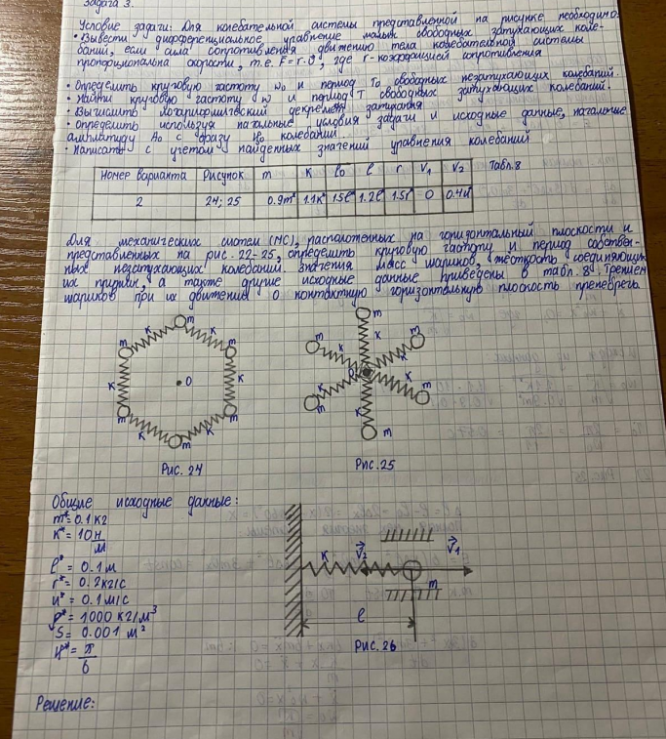 Задача 3.
Условие задачи: Для колебательной системы представленной на рисунке необходимо:
• Вывести дифференциальное уравнение малых свободных затухающих коле-
баний, если сила сопротивления движению тела колебательной системы
пропорциональна скорости, т.е. F = r·υ, где r - коэффициент сопротивления
• Определить круговую частоту ω₀ и период T₀ свободных незатухающих колебаний.
• Найти круговую частоту ω и период T свободных затухающих колебаний.
• Вычислить логарифмический декремент затухания
• Определить используя начальные условия задачи и исходные данные, начальные
амплитуду A₀ и фразу колебаний
• Написать с учетом найденных значений уравнения колебаний
Номер варианта Рисунок m k l₀ l r V₁ V₂ Табл.8
2 24; 25 0.9m* 1.1k* 1.2l* 1.5r* 0 0.4u*
Для механических систем (МС), расположенных на горизонтальный плоскости и
представленных на рис. 22-25, определить круговую частоту и период собствен-
ных незатухающих колебаний. Значения масс шариков, жёсткость соединяющих
их пружин, а также другие исходные данные приведены в табл. 8. Трением
шариков при их движении о контактную горизонтальную плоскость пренебречь
m m
K K m x m
m m m x x m
K • O K O
m m m x x m
K K K m
m
Рис. 24 Рис.25
Общие исходные данные:
m* = 0.1 кг
k* = 10 н/м
l* = 0.1 м
r* = 0.2 кг/с
u* = 0.1 м/с
ρ* = 1000 кг/м³
S = 0.001 м²
π/6
K V₂ V₁
m
l
Рис.26
Решение: